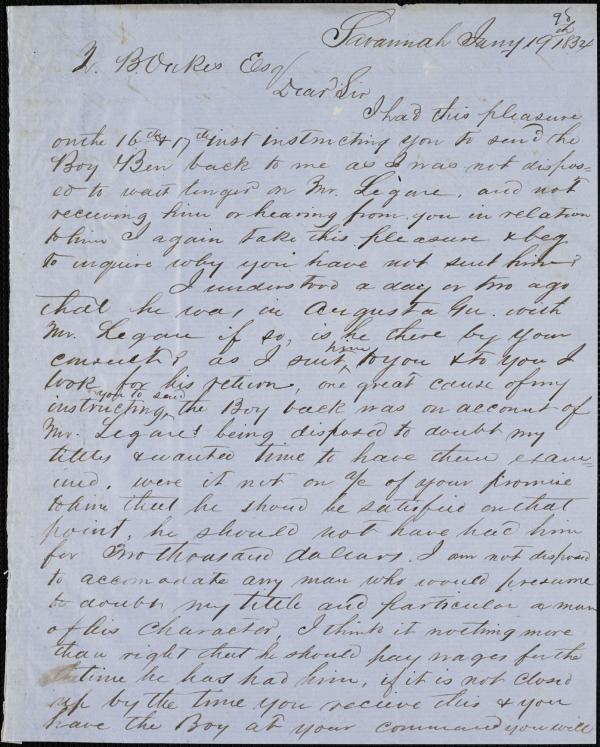 Savannah Jany 19th 1854
Z. B Oakes Esq
Dear Sir
I had this pleasure
on the 16th & 17th inst instructing you to send the
Boy Ben back to me as I was not dispos=
ed to wait longer on Mr. Legare, and not
receiving him or hearing from you in relation
to him I again take this pleasure & beg
to inquire why you have not sent him?
I understood a day or two ago
that he was in Augusta Ga. with
Mr. Legare if so, is he there by your
consent? as I sent him to you & to you I
look for his return, one great cause of my
instructing you to send the Boy back was on account of
Mr. Legare's being disposed to doubt my
titles & wanted time to have them exam=
ined, were it not on a/c of your promise
to him that he should be satisfied on that
point, he should not have had him
for Two thousand dollars. I am not disposed
to accomodate any man who would presume
to doubt my tittle and particular a man
of his character, I think it nothing more
than right that he should pay wages for the
time he has had him, if it is not closed
up by the time you recieve this & you
have the Boy at your command you will